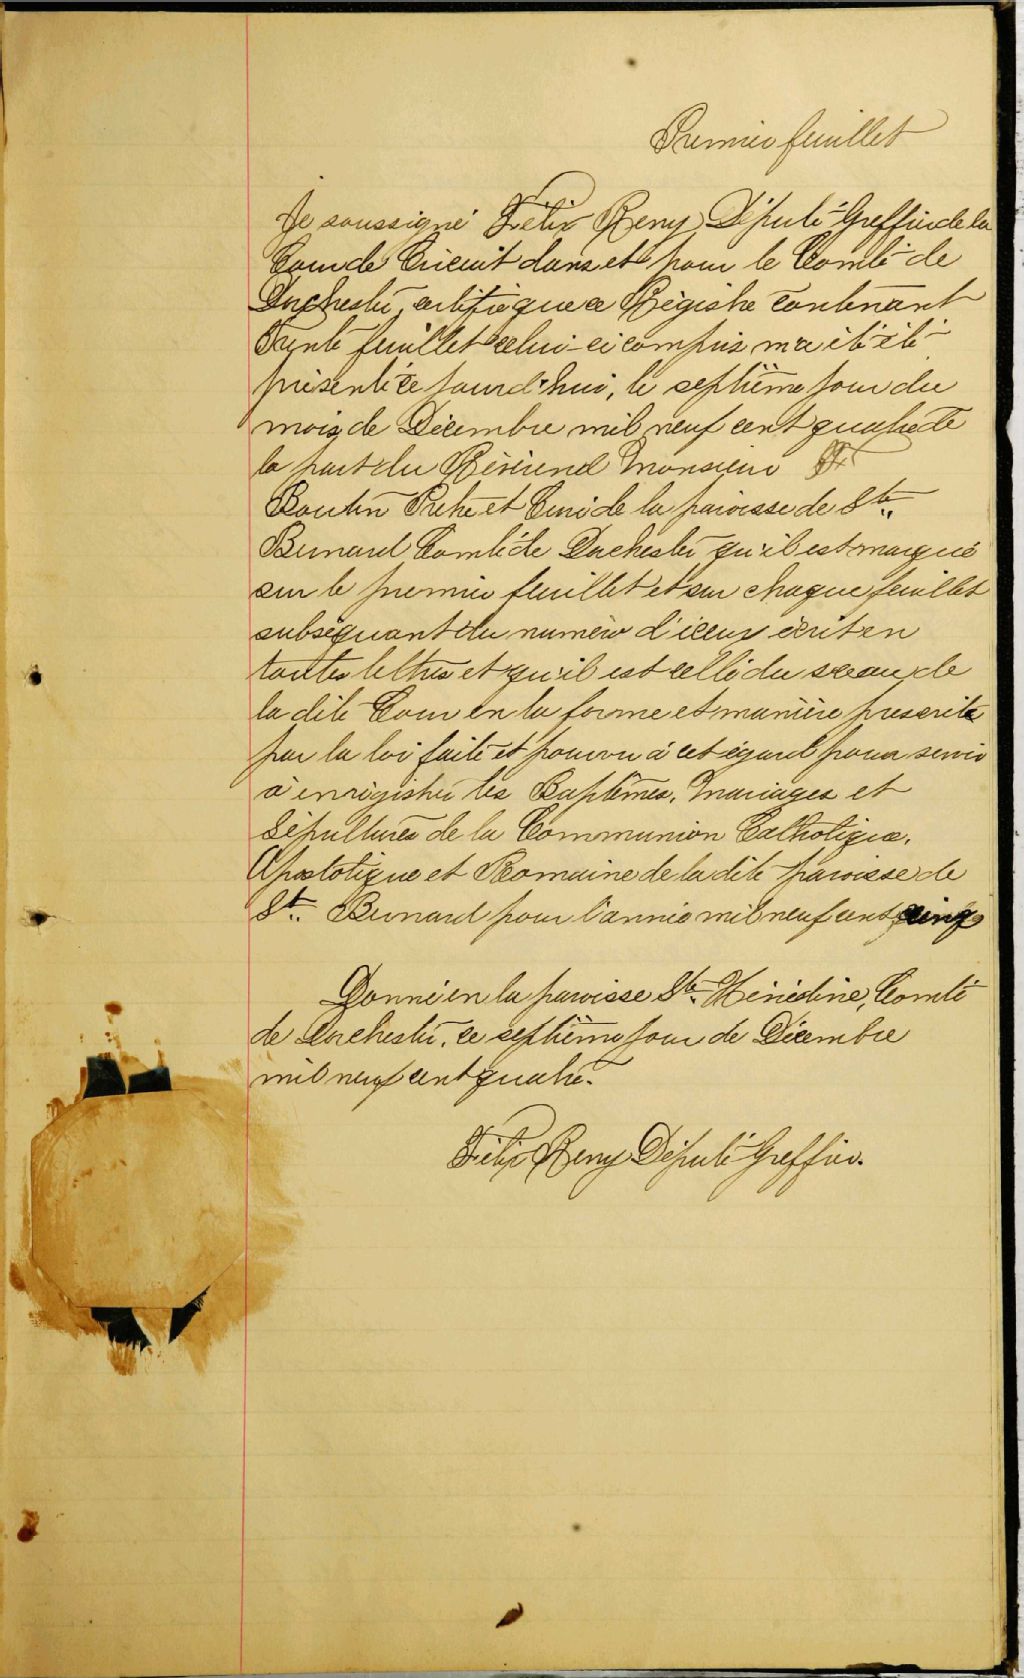 Premier feuillet
Je soussigné Félix Remy Député-Greffier de la
Cour de Circuit dans et pour le Comté de
Dorchester, certifie que ce Régistre contenant
Trente feuillet celui-ci compris m'a été été
présenté ce jourd'hui, le septième jour du
mois de Décembre mil neuf cent quatre de
la part du Révérend Monsieur
Boutin Prêtre et Curé de la paroisse de St.
Bernard Comté de Dorchester qu'il est marqué
sur le premier feuillet et sur chaque feuillet
subséquant du numéro d'iceux écrit en
toutes lettres et qu'il est cellé du sceau de
la dite Cour en la forme et manière prescrite
par la loi faite et pourvu à cet égard pour servir
à enrégistrer les Baptêmes, Mariages et
Sépultures de la Communion Catholique,
Apostolique et Romaine de la dite paroisse de
St. Bernard pour l'année mil neuf cent cinq
Donné en la paroisse Ste. Hénédine, Comté
de Dorchester, ce septième jour de Décembre
mil neuf cent quatre.
Félix Remy Député Greffier.